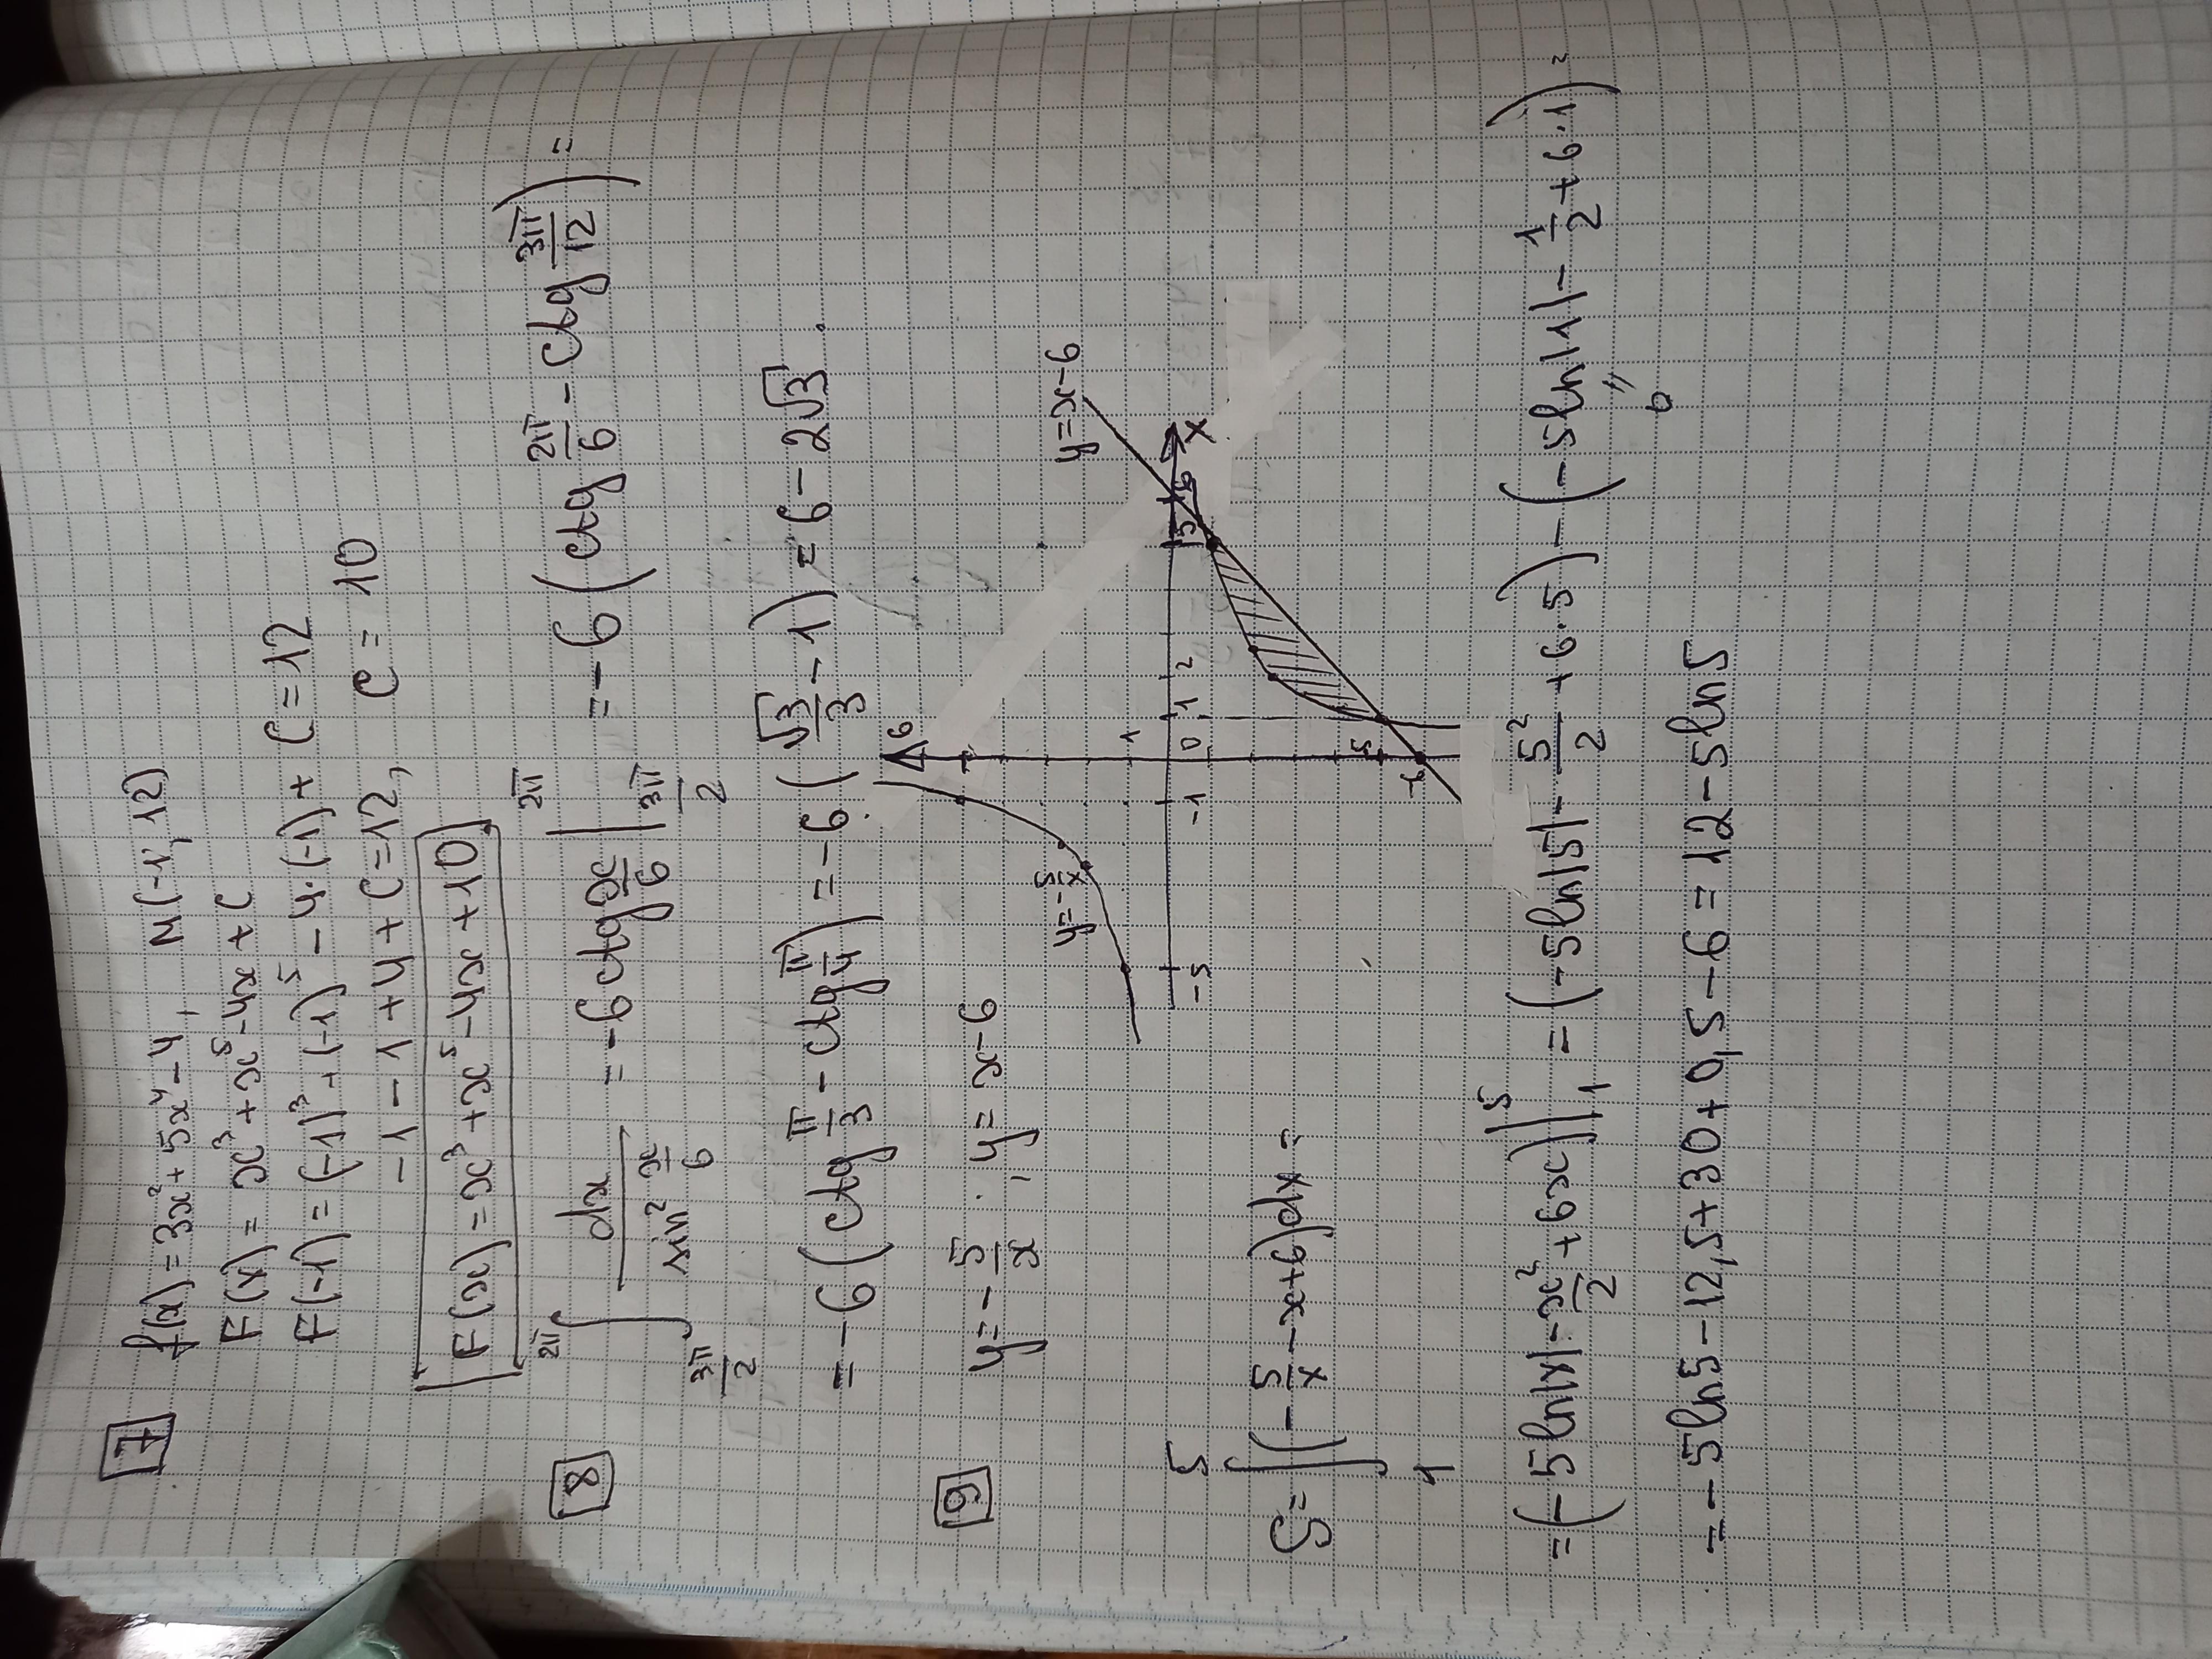 7 f(x) = 3x² + 5x⁴ − 4, M(−1; 12)
F(x) = x³ + x⁵ − 4x + C
F(−1) = (−1)³ + (−1)⁵ − 4·(−1) + C = 12
−1 − 1 + 4 + C = 12, C = 10
F(x) = x³ + x⁵ − 4x + 10
8 ∫_{3π/2}^{2π} dx / sin² x/6 = −6 ctg x/6 |_{3π/2}^{2π} = −6 (ctg 2π/6 − ctg 3π/12) =
= −6 (ctg π/3 − ctg π/4) = −6 (√3/3 − 1) = 6 − 2√3.
9 y = −5/x, y = x−6
6
y = −5/x
y = x−6
1
−5 −1 0 1 2 5 6 x
S = ∫_1^5 (−5/x − x + 6) dx =
= (−5 ln|x| − x²/2 + 6x) |_1^5 = (−5 ln|5| − 5²/2 + 6·5) − (−5 ln|1| − 1/2 + 6·1) =
"
0
= −5 ln 5 − 12,5 + 30 + 0,5 − 6 = 12 − 5 ln 5